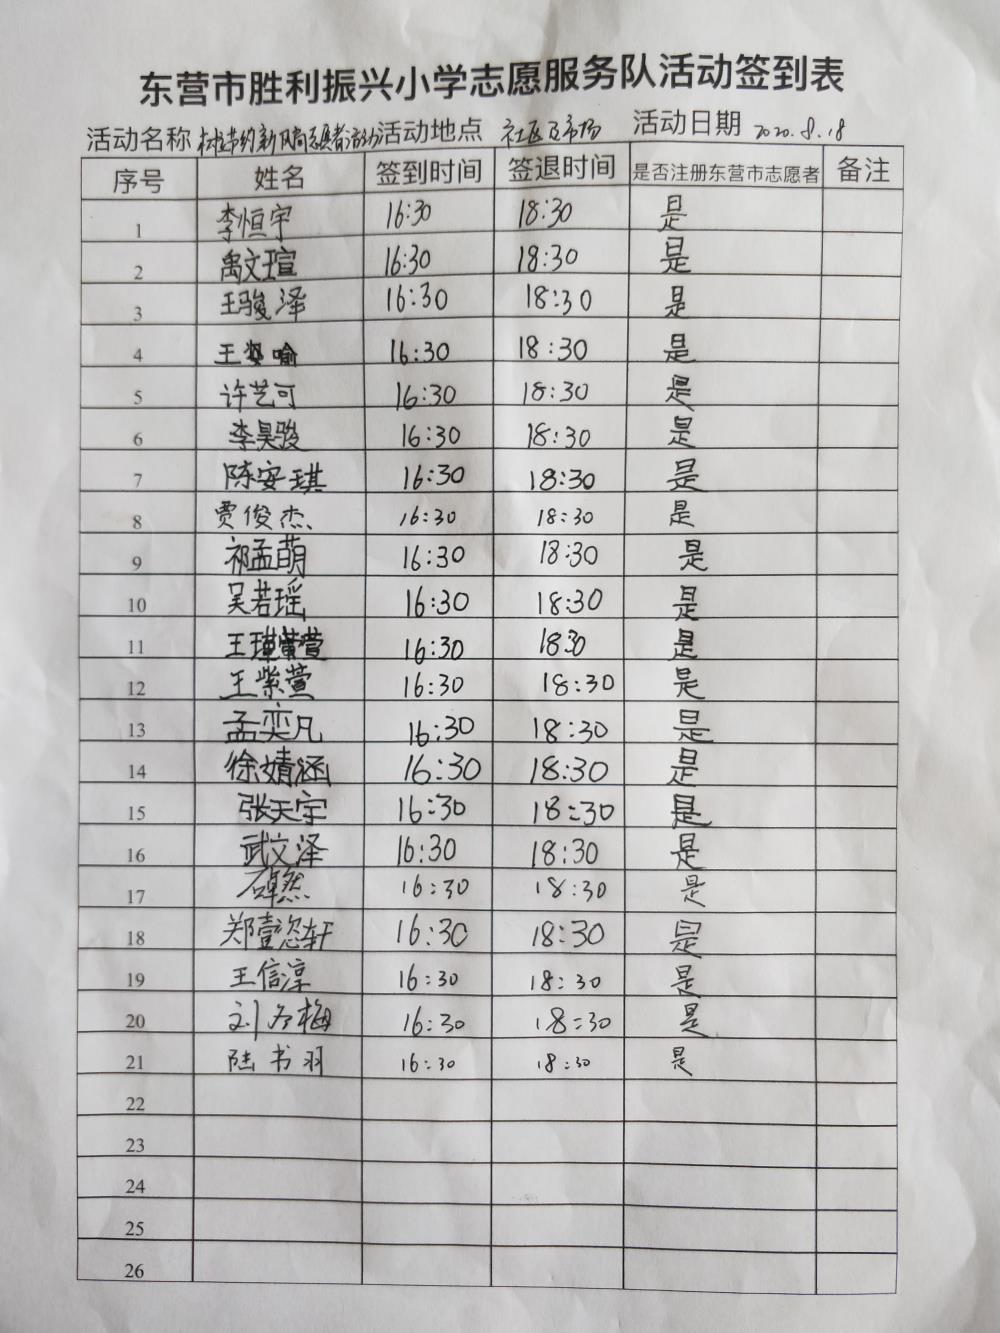 东营市胜利振兴小学志愿服务队活动签到表
活动名称 树节约新风尚志愿者活动 活动地点 社区及市场 活动日期 2020.8.18
序号 姓名 签到时间 签退时间 是否注册东营市志愿者 备注
1 李恒宇 16:30 18:30 是
2 禹文瑄 16:30 18:30 是
3 王骏泽 16:30 18:30 是
4 王 喻 16:30 18:30 是
5 许艺可 16:30 18:30 是
6 李昊骏 16:30 18:30 是
7 陈安琪 16:30 18:30 是
8 贾俊杰 16:30 18:30 是
9 祁孟萌 16:30 18:30 是
10 吴若瑶 16:30 18:30 是
11 王 萱 16:30 1830 是
12 王紫萱 16:30 18:30 是
13 孟奕凡 16:30 18:30 是
14 徐婧涵 16:30 18:30 是
15 张天宇 16:30 18:30 是
16 武文泽 16:30 18:30 是
17 然 16:30 18:30 是
18 郑壹恣轩 16:30 18:30 是
19 王信淳 16:30 18:30 是
20 刘冬梅 16:30 18:30 是
21 陆书羽 16:30 18:30 是
22
23
24
25
26